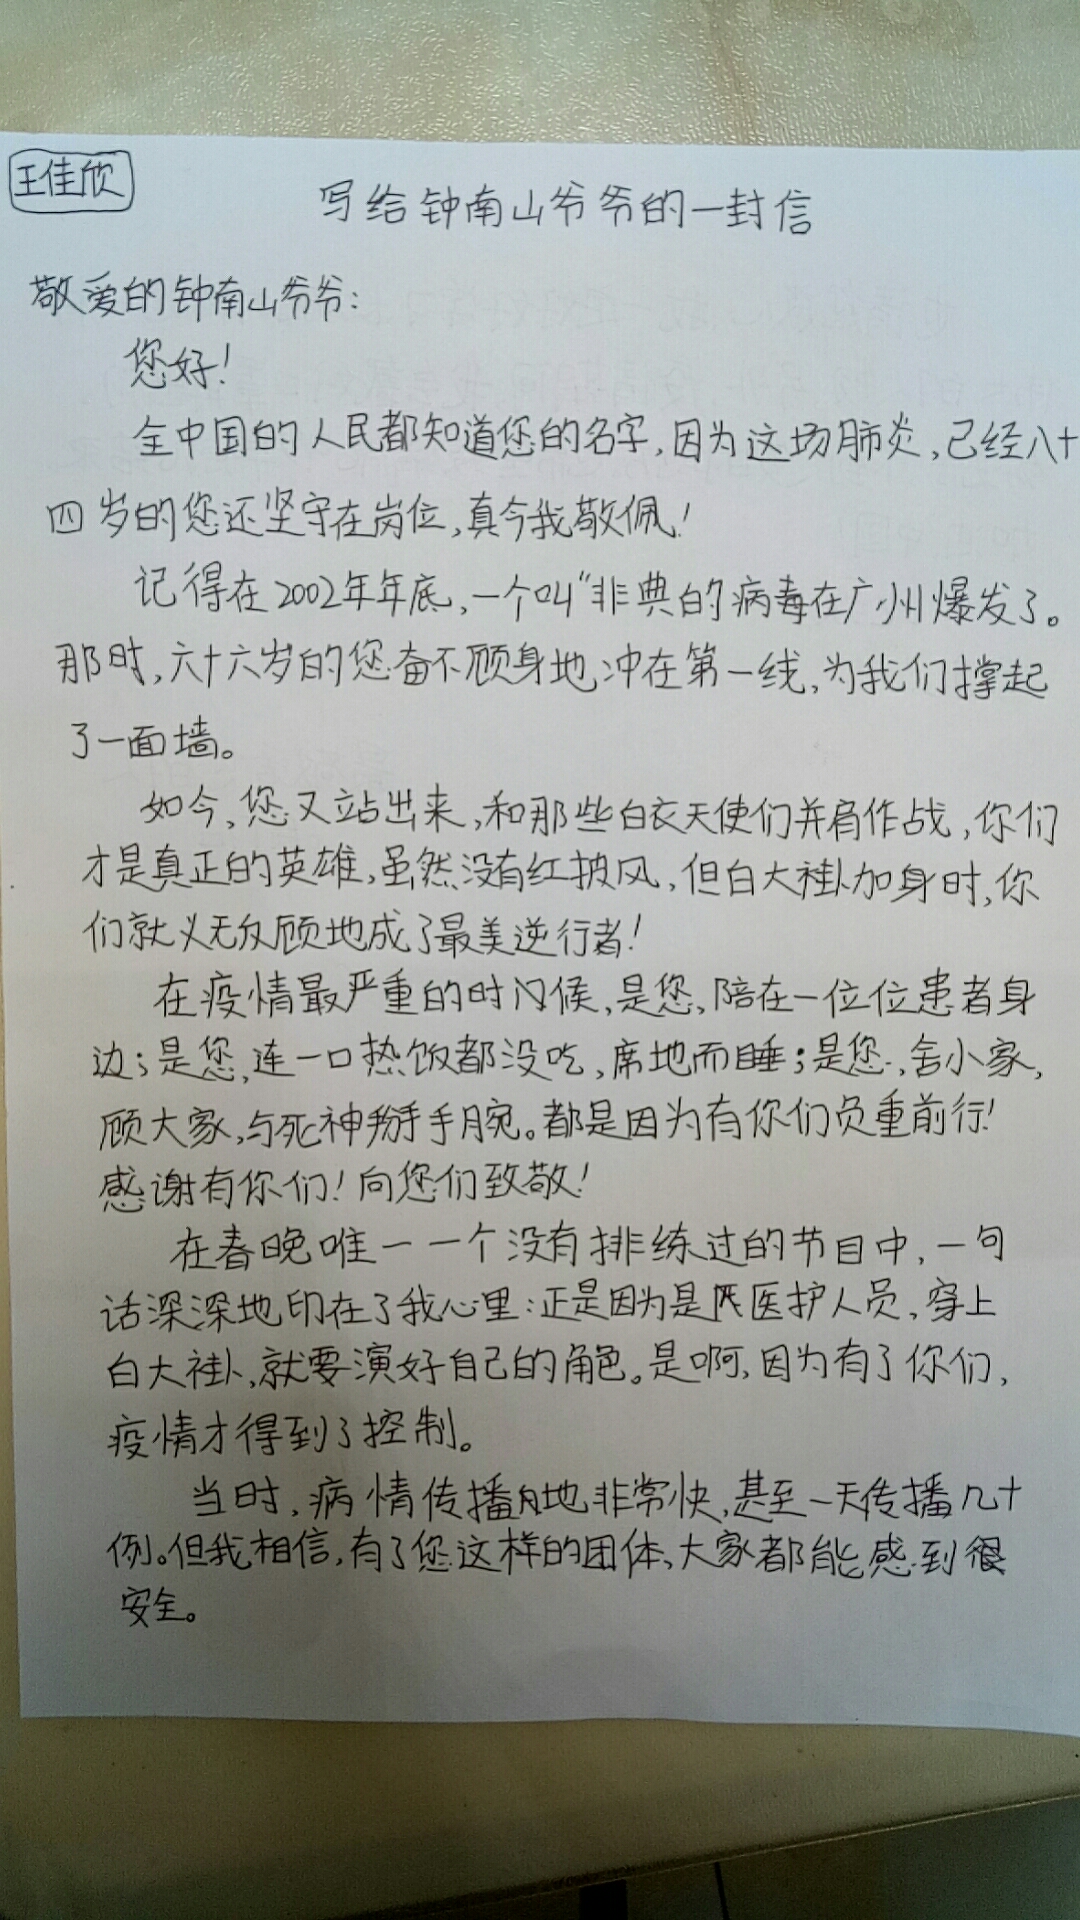 王佳欣
写给钟南山爷爷的一封信
敬爱的钟南山爷爷：
您好！
全中国的人民都知道您的名字，因为这场肺炎，已经八十
四岁的您还坚守在岗位，真令我敬佩！
记得在2002年年底，一个叫“非典的病毒在广州爆发了。
那时，六十六岁的您奋不顾身地冲在第一线，为我们撑起
了一面墙。
如今，您又站出来，和那些白衣天使们并肩作战，你们
才是真正的英雄，虽然没有红披风，但白大褂加身时，你
们就义无反顾地成了最美逆行者！
在疫情最严重的时候，是您，陪在一位位患者身
边；是您，连一口热饭都没吃，席地而睡；是您，舍小家，
顾大家，与死神掰手腕。都是因为有你们负重前行！
感谢有你们！向您们致敬！
在春晚唯一一个没有排练过的节目中，一句
话深深地印在了我心里：正是因为是医护人员，穿上
白大褂，就要演好自己的角色。是啊，因为有了你们，
疫情才得到了控制。
当时，病情传播地非常快，甚至一天传播几十
例。但我相信，有了您这样的团体，大家都能感到很
安全。